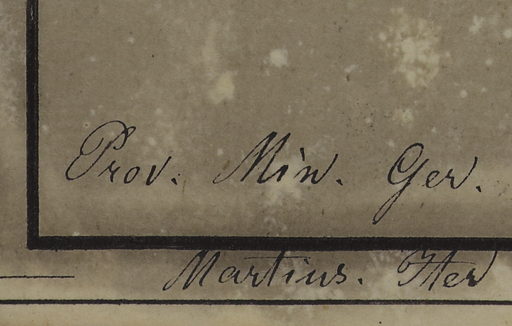 Prov. Min. Ger.
Martius. Iter